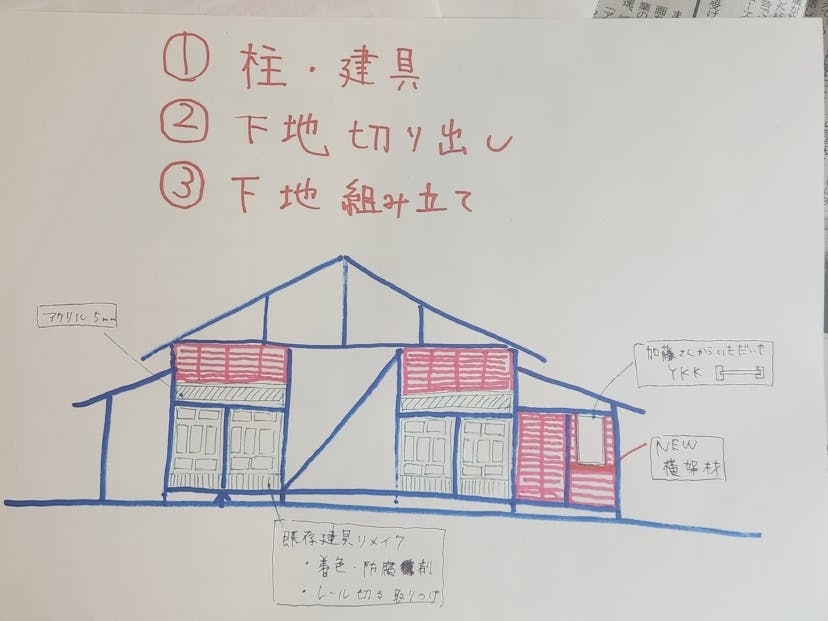 ① 柱・建具
② 下地 切り出し
③ 下地 組み立て
アクリル 5mm
加藤さんからいただいた
YKK
NEW
横架材
既存建具リメイク
・着色・防腐剤
・レール切る 取りつけ